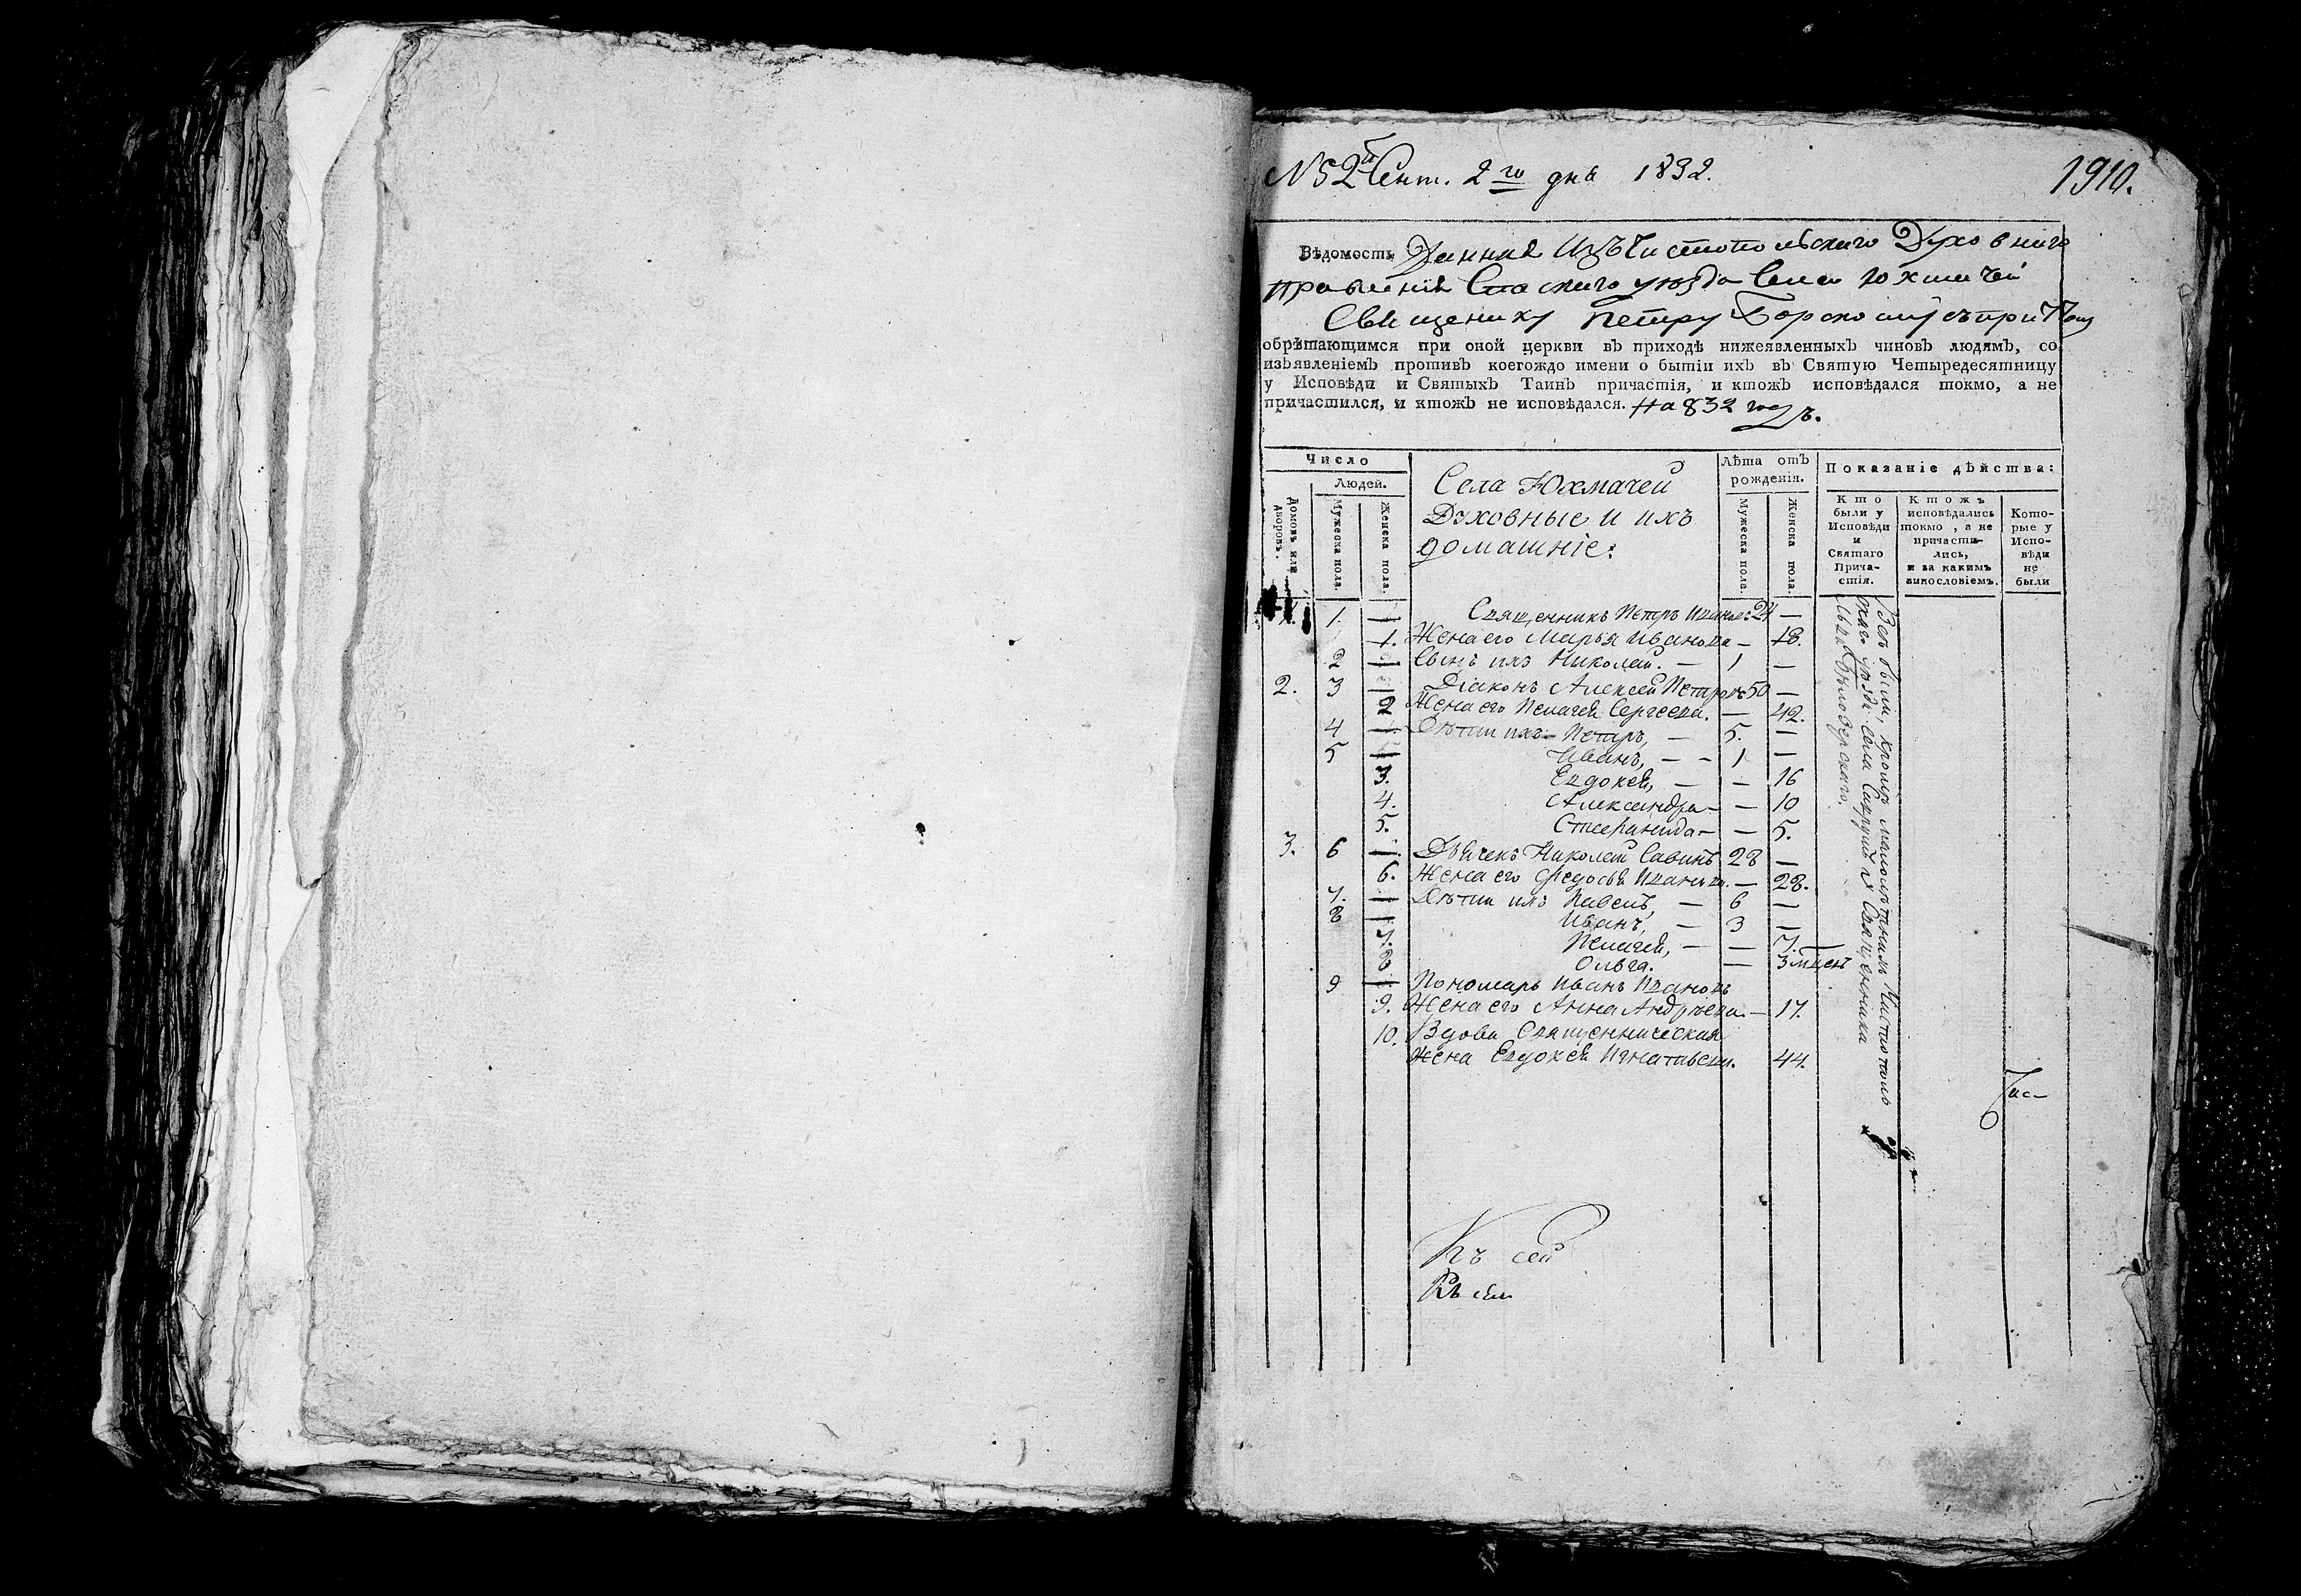 № 52й Сент. 2го дня 1832.
1910.
Вѣдомость Данная Изъ Чистопольскаго Духовнаго
правленія Спаскаго уѣзда Села Юхмачей
Священнику Петру Борскому съ причтомъ
обрѣтающимся при оной церкви въ приходѣ нижеявленныхъ чиновъ людямъ, со
изъявленіемъ противъ коегождо имени о бытіи ихъ въ Святую Четыредесятницу
у Исповѣди и Святыхъ Таинъ причастія, и ктожъ исповѣдался токмо, а не
причастился, и ктожъ не исповѣдался. На 832 годъ.
Число
Людей.
Домовъ или дворовъ.
Мужеска пола.
Женска пола.
Села Юхмачей
Духовные и ихъ
домашніе:
Лѣта отъ
рожденія.
Мужеска пола.
Женска пола.
Показаніе дѣйства:
Кто
были у
Исповѣди
и
Святаго
Прича-
стія.
Ктожъ
исповѣдались
токмо, а не
причасти-
лись,
и за какимъ
винословіемъ.
Кото-
рые у
Испо-
вѣди
не
были
1. — Священникъ Петръ Ивановъ 24 —
1. Жена его Марья Иванова — 18.
2 — Сынъ ихъ Николай. — 1 —
2. 3 — Діаконъ Алексей Петровъ 50 —
2 Жена его Пелагея Сергеева. — 42.
4 — Дѣти ихъ Петръ, — 5. —
5 — Иванъ, — — 1 —
3. Евдокея, — — 16
4. Александра — — 10
5. — — 5.
3. 6 — Дьячекъ Николай Савинъ 28 —
6. Жена его Федосья Иванова. — 28.
7. — Дѣти ихъ Павелъ, — 6 —
8 — Иванъ, — 3 —
7. Пелагея, — — 7.
8 Ольга. — 3 мѣсец
9 — Пономарь Иванъ Ивановъ
9. Жена его Анна Андрѣева. — 17.
10. Вдова Священническая
жена Евдокея Игнатьева. 44.
Всѣ были, кромѣ малолѣтнихъ Чистополь
скаго уѣзда села у Священника
Льва Бѣлозерскаго.
Къ сей
Къ сей